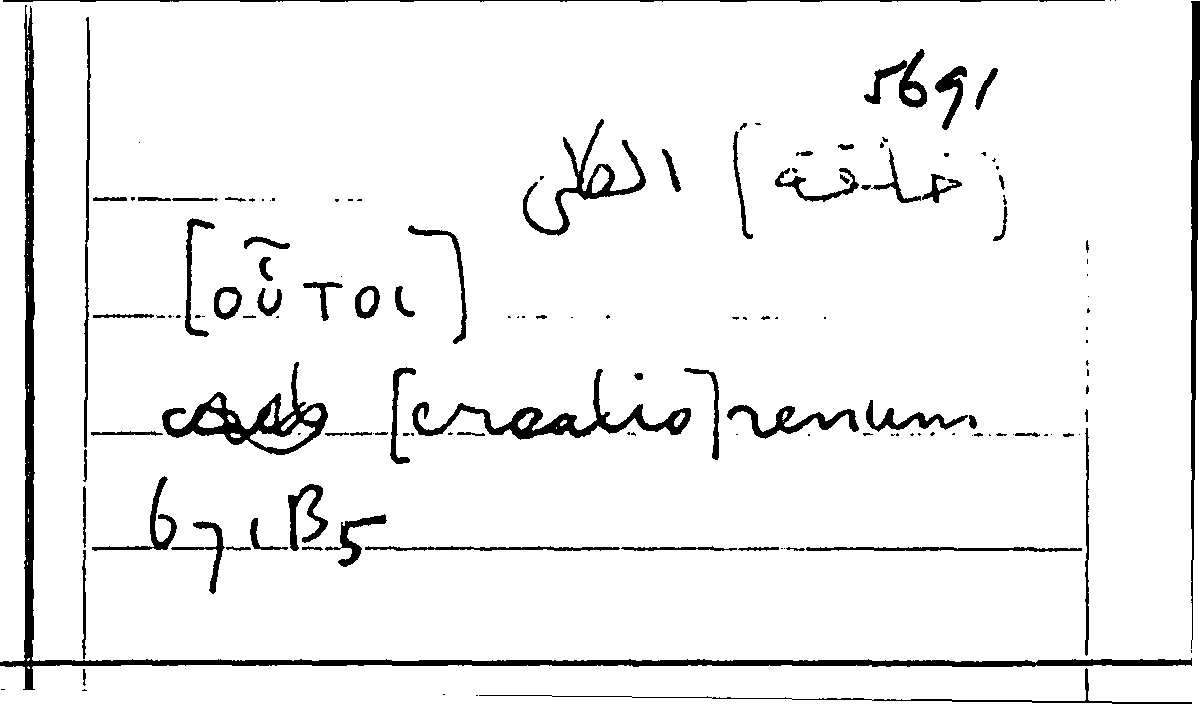 5691
[خلقة] الكلى
[οὗτοι]
[creatio] renum
671B5